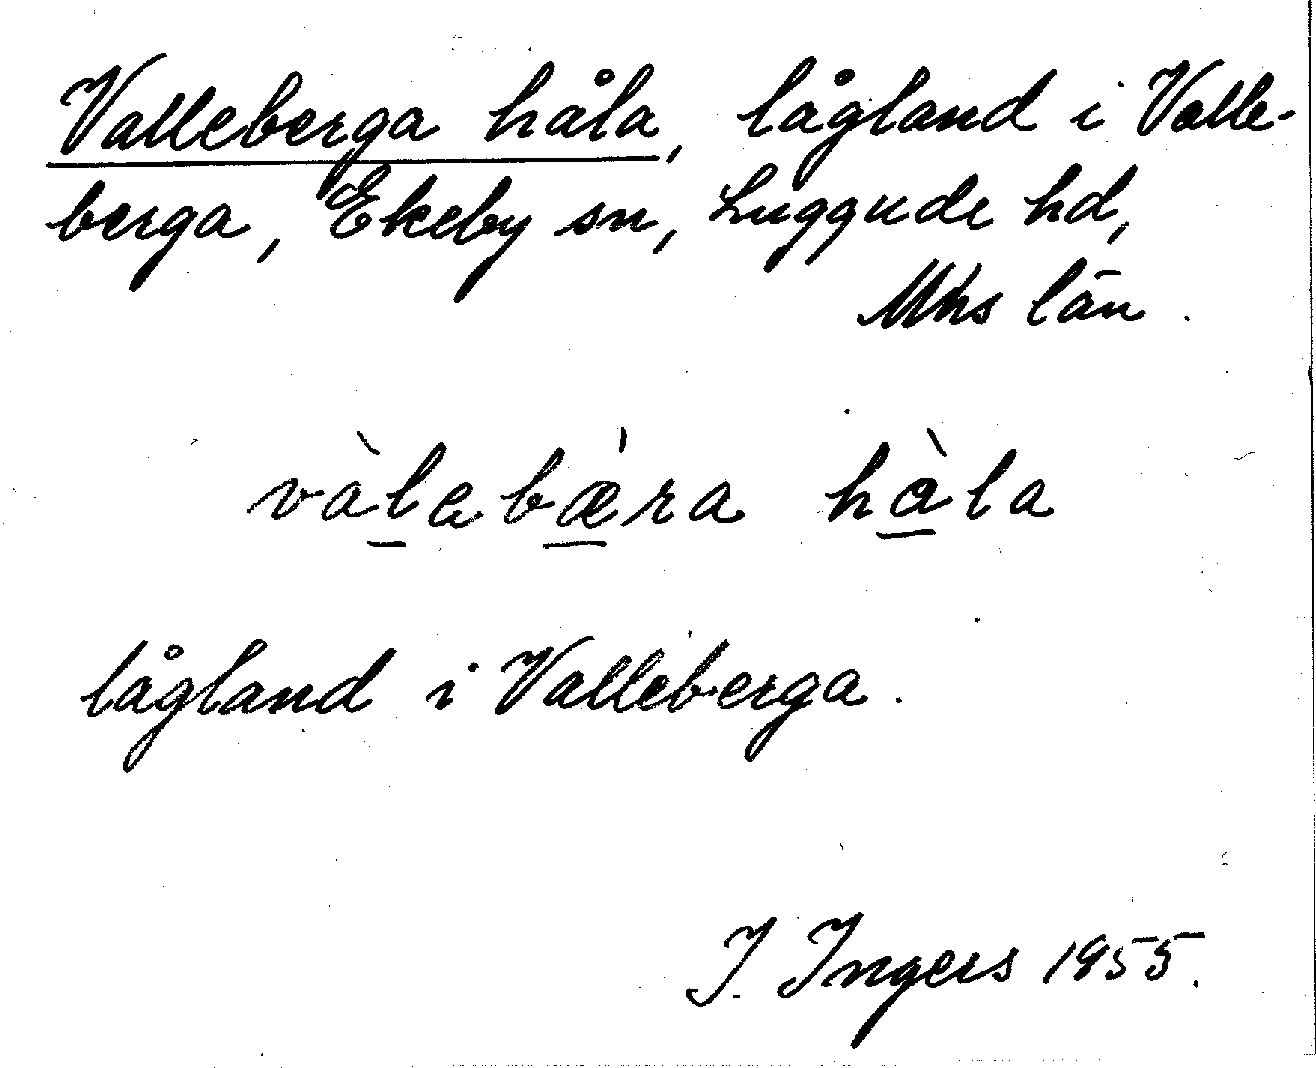 Valleberga håla, lågland i Valle-
berga, Ekeby sn, Luggude hd,
Mhs län.
vàlebæ̀ra hàla
lågland i Valleberga.
I. Ingers 1955.